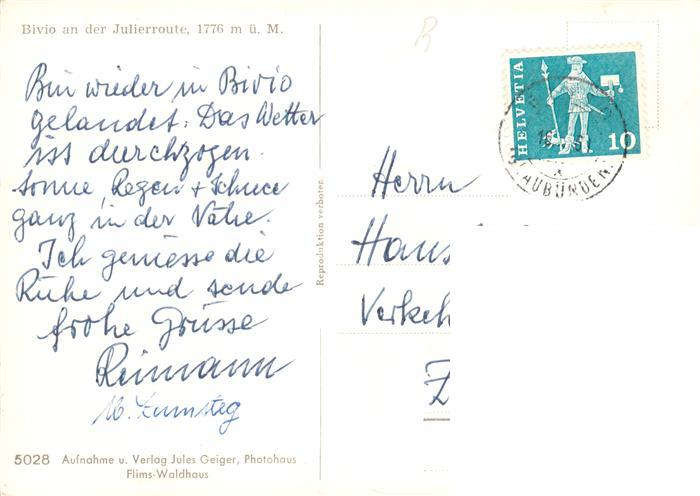 Bivio an der Julierroute, 1776 m ü. M.
Bin wieder in Bivio
gelandet. Das Wetter
ist durchzogen.
Sonne, Regen + Schnee
ganz in der Nähe.
Ich geniesse die
Ruhe und sende
frohe Grüsse
Reimann
M. Zumsteg
5028 Aufnahme u. Verlag Jules Geiger, Photohaus
Flims-Waldhaus
Reproduktion verboten.
HELVETIA
10
Herrn
Hans
Verkeh
Z